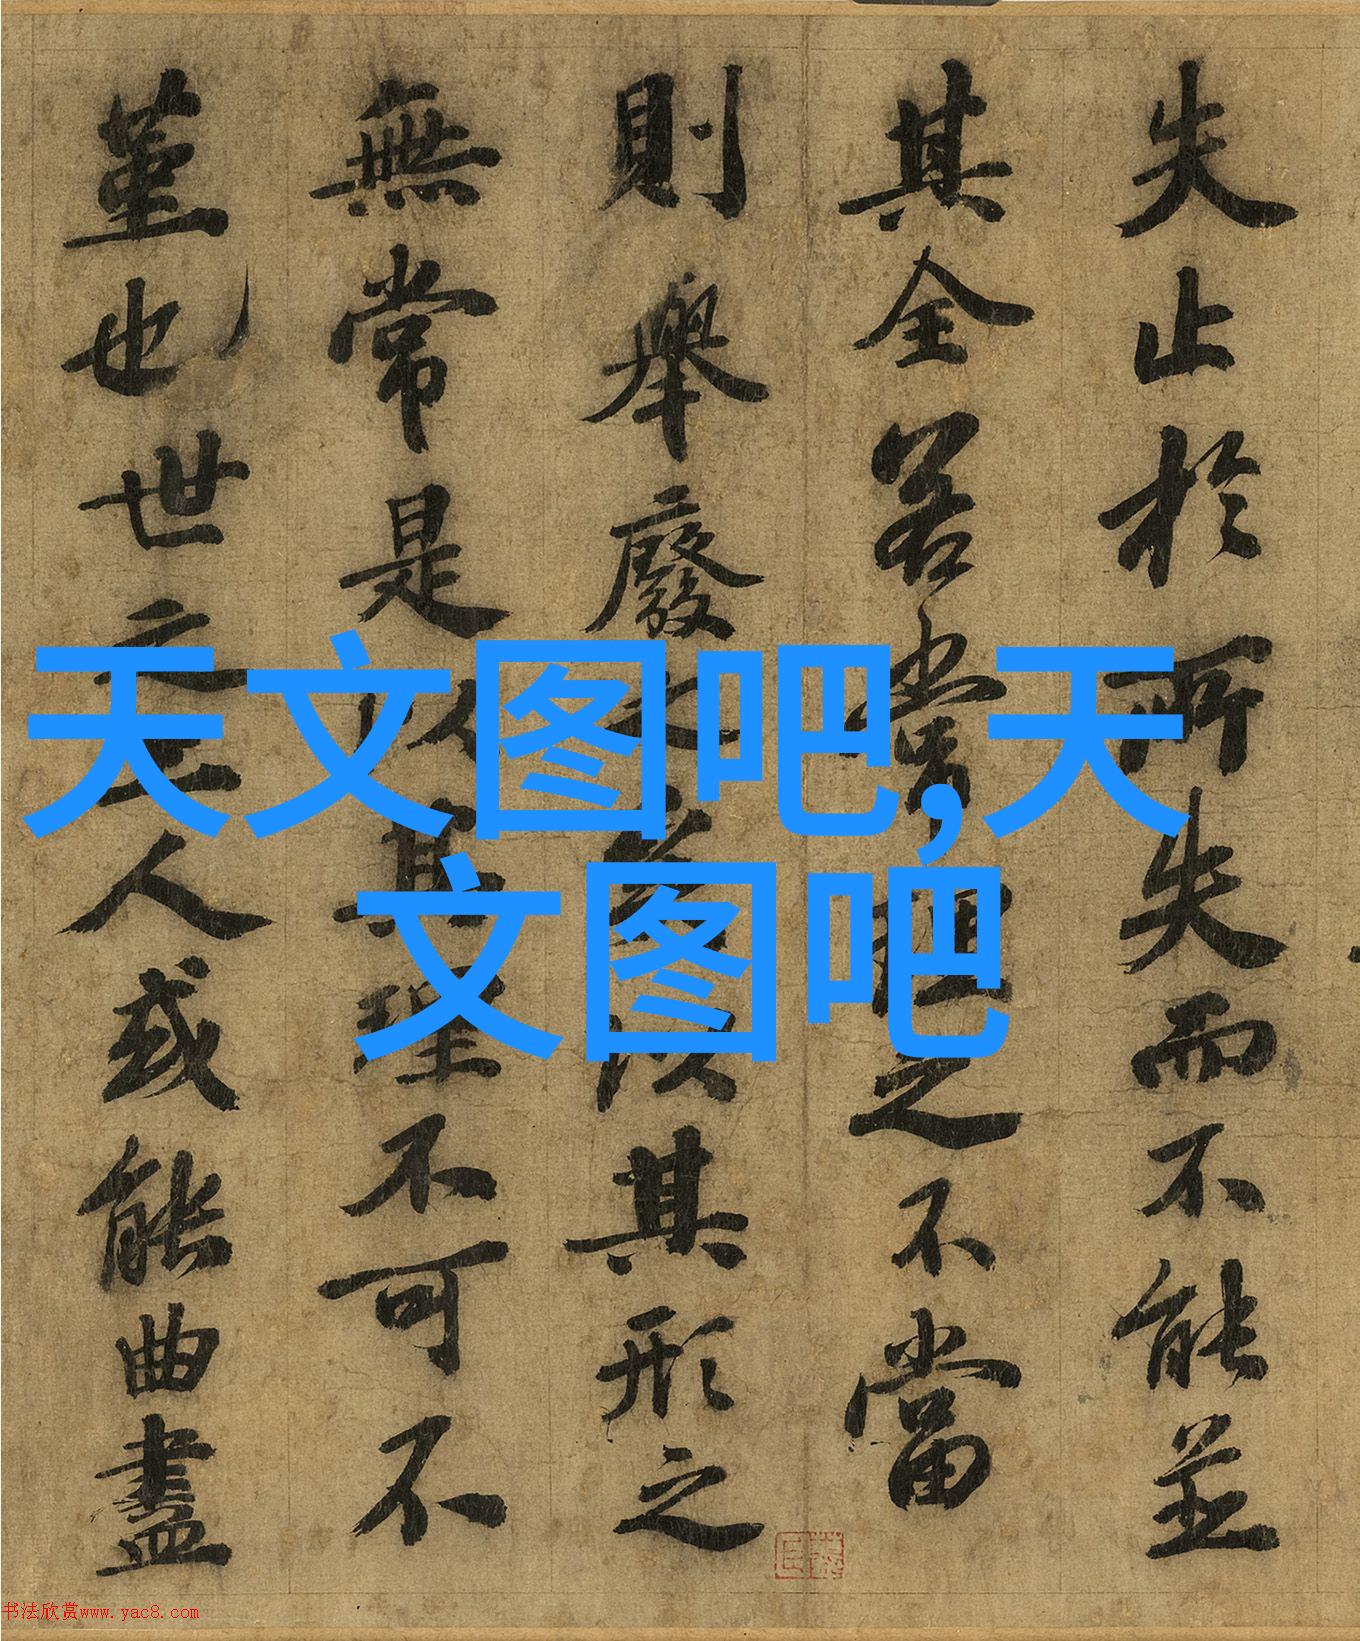 失止於所失而不能並
其全若常理之不當
則舉廢以其形之
無常是以其理不可不
堇也世之工人或能曲盡
天文图吧,天
文图吧
书法欣赏www.yac8.com